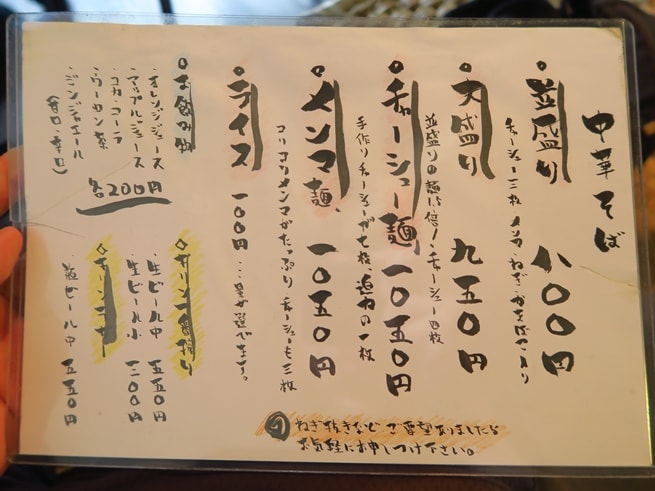 中華そば
○並盛り 八〇〇円
チャーシュー二枚 メンマ・ねぎ・かまぼこ入り
○大盛り 九五〇円
並盛りの麺1.5倍!チャーシュー四枚
○チャーシュー麺 一〇五〇円
手作りチャーシューが七枚、追加の一枚
○メンマ麺 一〇五〇円
コリコリメンマがたっぷり チャーシューも二枚
○ライス 一〇〇円 …量が選べます
○お飲み物
オレンジジュース
アップルジュース
コカ・コーラ
ウーロン茶
ジンジャエール
(甘口・辛口)
各200円
○キリン一番搾り
生ビール中 五五〇円
生ビール小 三〇〇円
瓶ビール中 五五〇円
ねぎ抜きなど ご要望ありましたら
お気軽にお申しつけ下さい。